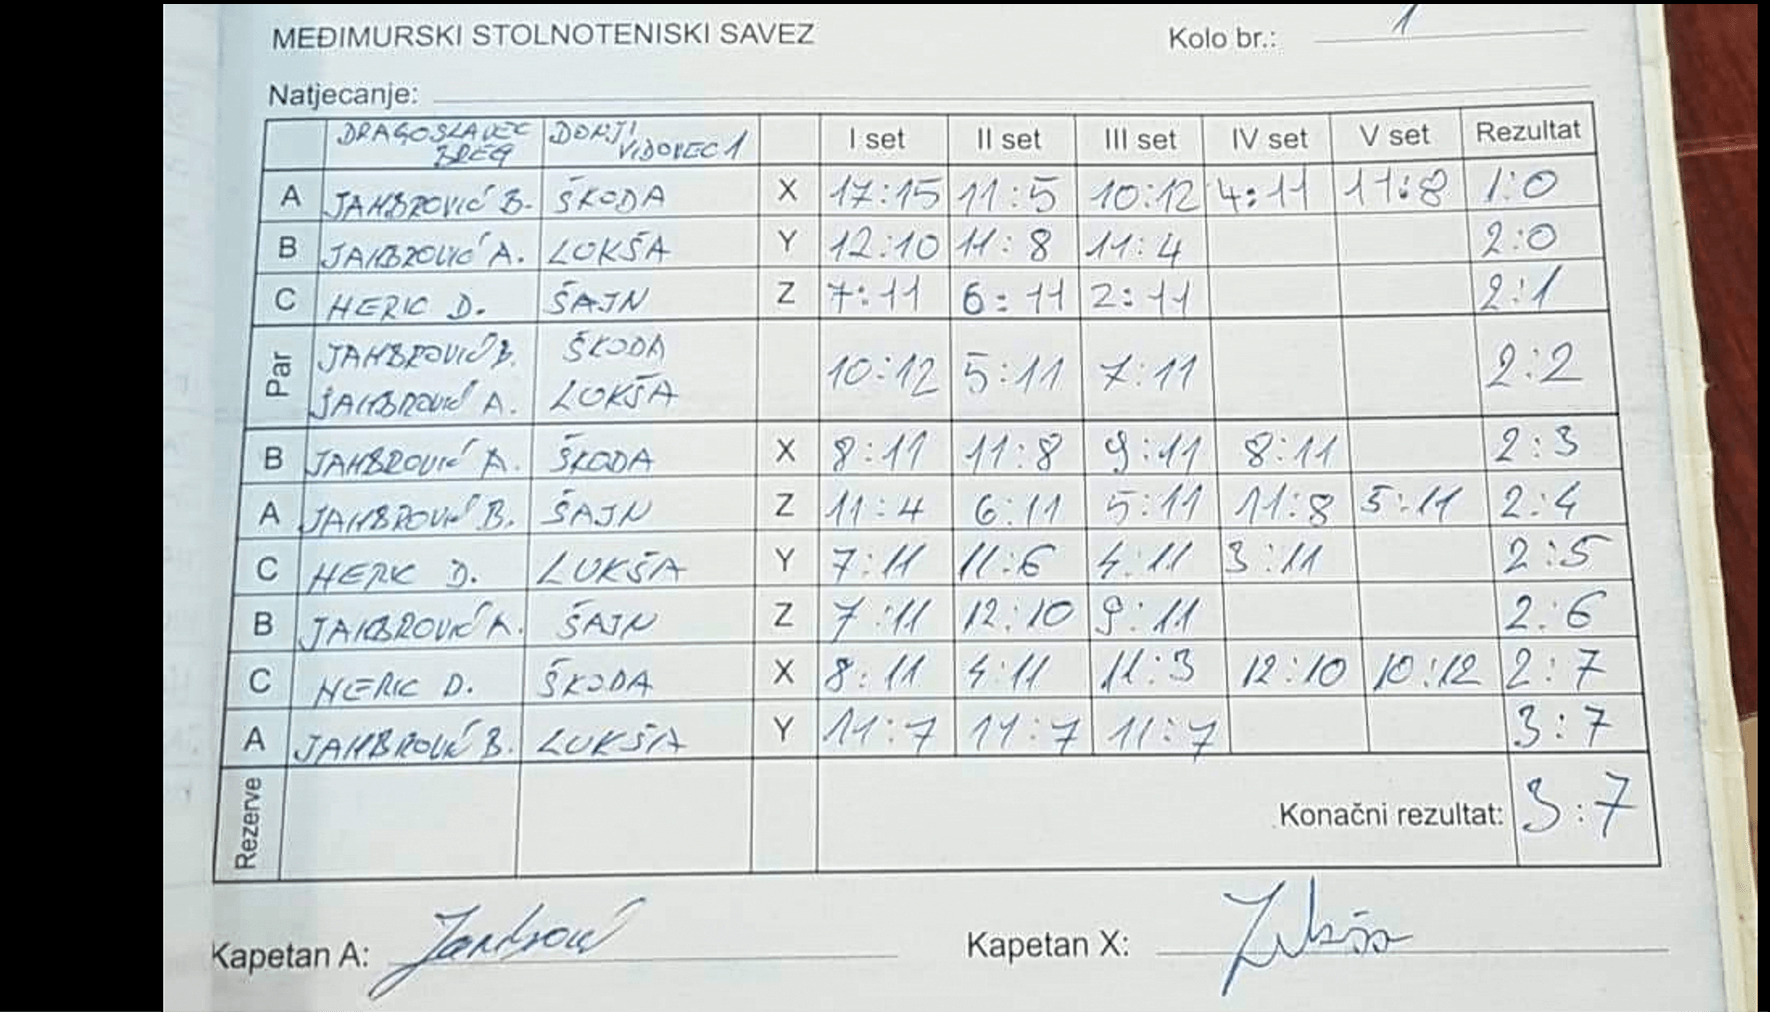 MEĐIMURSKI STOLNOTENISKI SAVEZ Kolo br.: 1
Natjecanje:
DRAGOSLAVEC BREG DONJI VIDOVEC 1 I set II set III set IV set V set Rezultat
A JAMBROVIĆ B. ŠKODA X 17:15 11:5 10:12 4:11 11:8 1:0
B JAMBROVIĆ A. LUKŠA Y 12:10 11:8 11:4 2:0
C HERIC D. ŠAJN Z 7:11 6:11 2:11 2:1
Par JAMBROVIĆ B. ŠKODA
JAMBROVIĆ A. LUKŠA 10:12 5:11 7:11 2:2
B JAMBROVIĆ A. ŠKODA X 8:11 11:8 9:11 8:11 2:3
A JAMBROVIĆ B. ŠAJN Z 11:4 6:11 5:11 11:8 5:11 2:4
C HERIC D. LUKŠA Y 7:11 11:6 4:11 3:11 2:5
B JAMBROVIĆ A. ŠAJN Z 7:11 12:10 9:11 2:6
C HERIC D. ŠKODA X 8:11 4:11 11:3 12:10 10:12 2:7
A JAMBROVIĆ B. LUKŠA Y 11:7 11:7 11:7 3:7
Rezerve Konačni rezultat: 3:7
Kapetan A: Kapetan X: